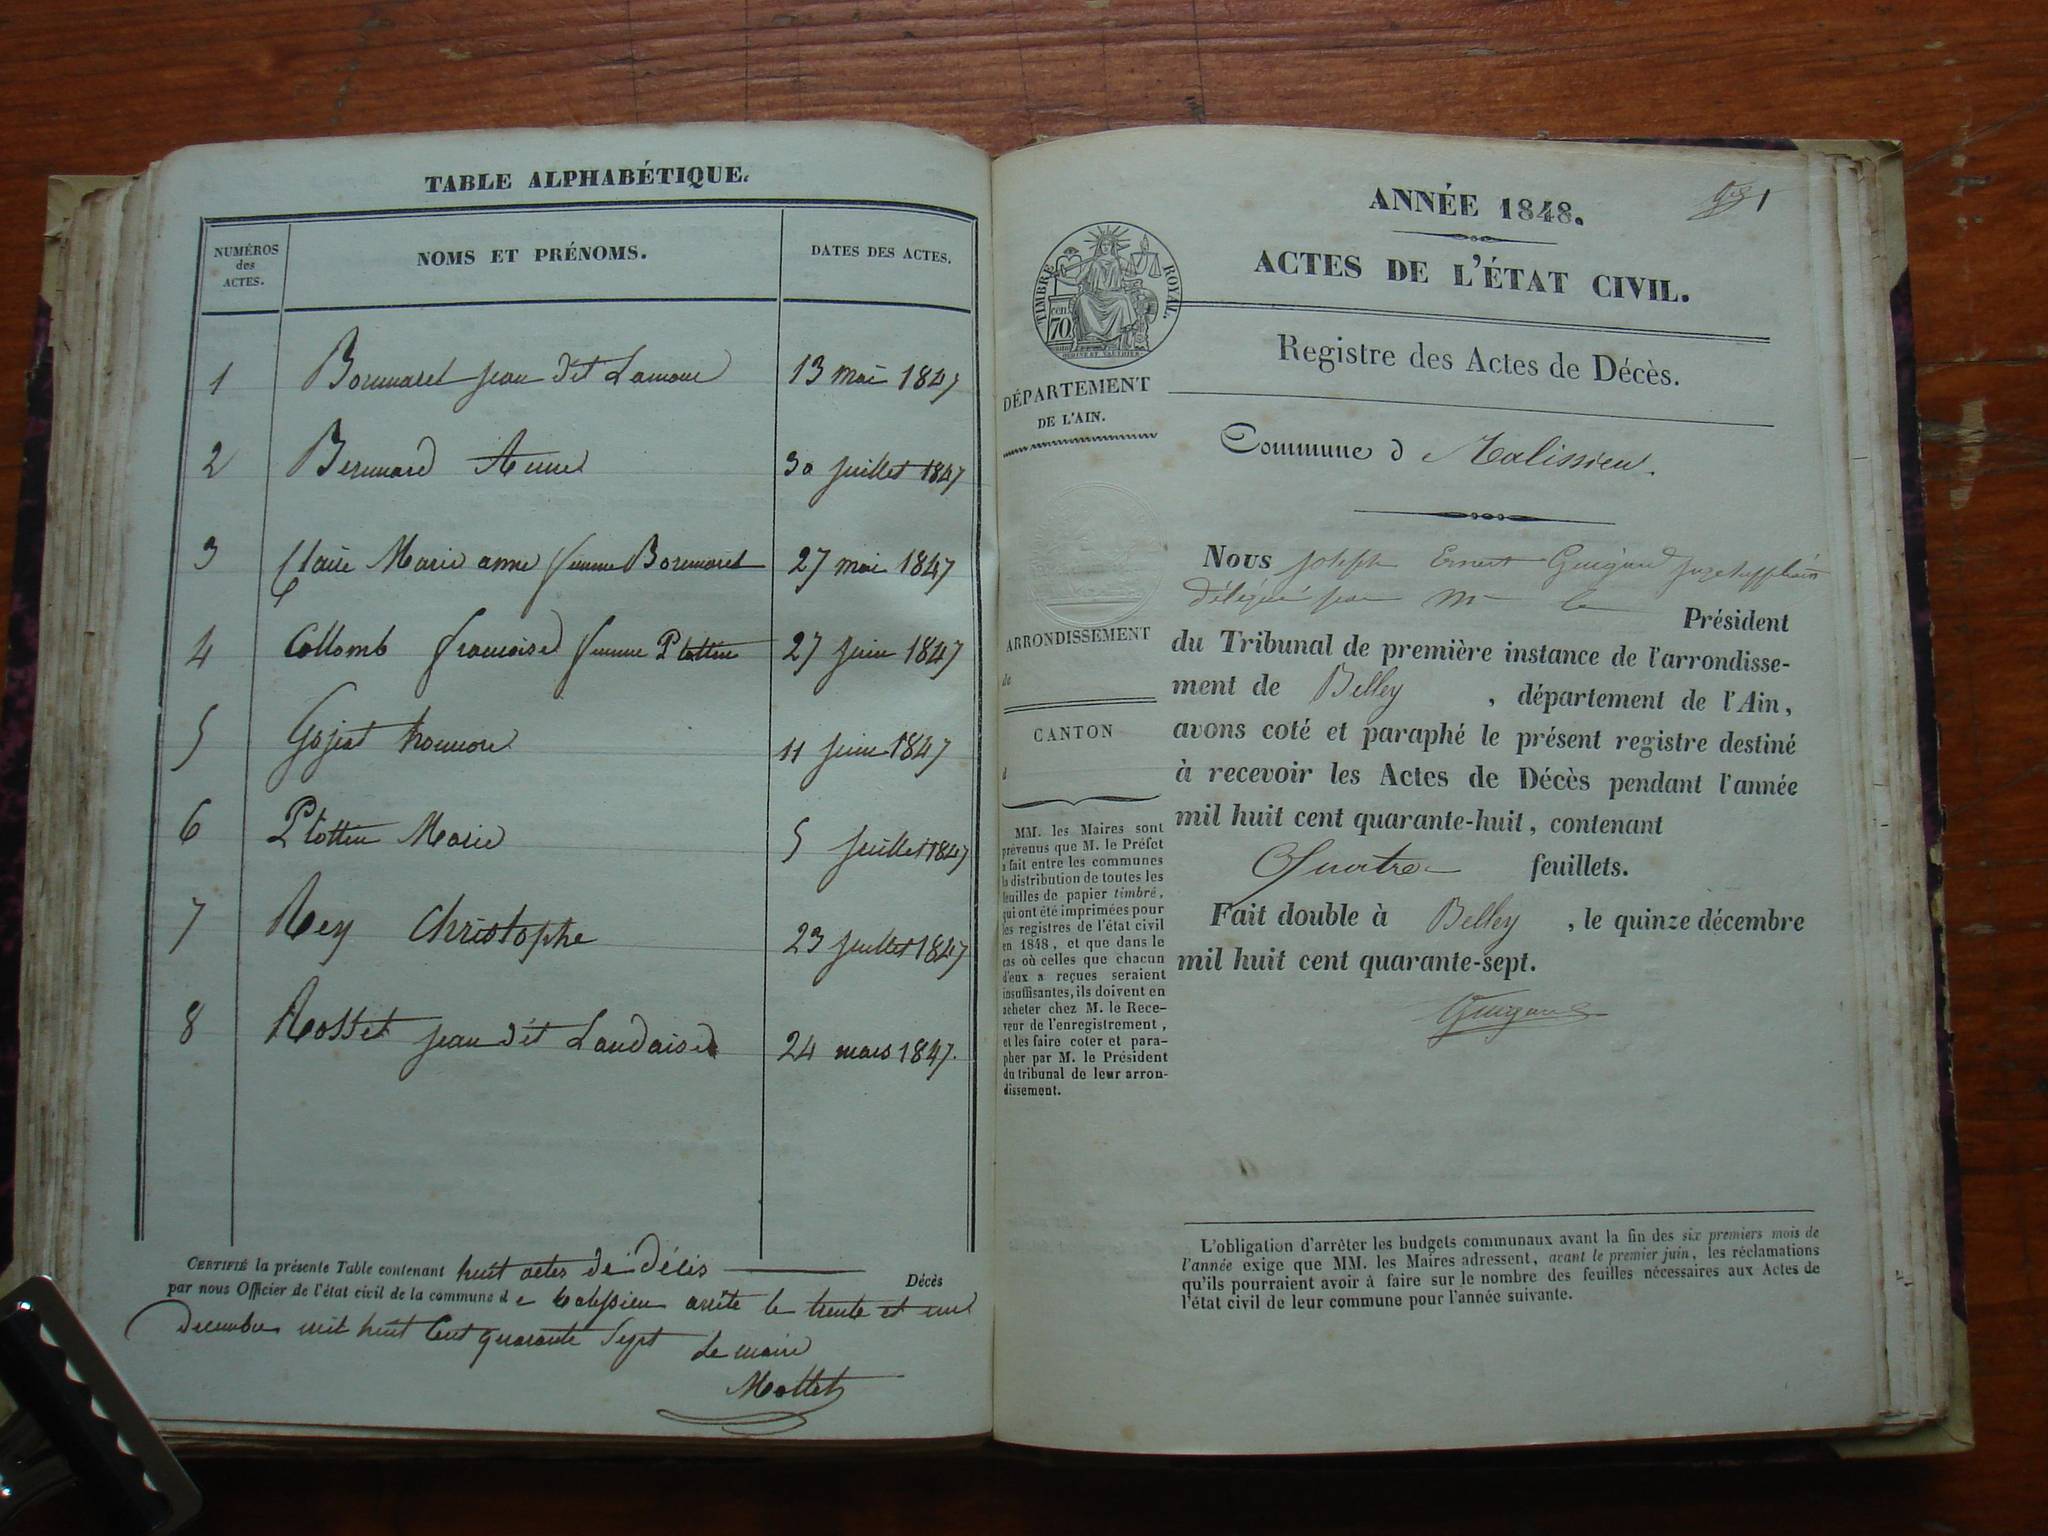 TABLE ALPHABÉTIQUE.
NUMÉROS
des
ACTES.
NOMS ET PRÉNOMS.
DATES DES ACTES.
1 Bonnaret jean dit Lamour 13 mai 1847
2 Bernard Anne 30 juillet 1847
3 Claire Marie anne femme Bonnaret 27 mai 1847
4 Collomb françoise femme Plottin 27 juin 1847
5 11 juin 1847
6 Plottin Marie 5 juillet 1847
7 Rey Christophe 23 juillet 1847
8 Rosset jean dit Landaise 24 mars 1847.
CERTIFIÉ la présente Table contenant huit actes de décès
Décès
par nous Officier de l'état civil de la commune de arrêté le trente et un
decembre mil huit cent quarante sept Le maire
Mottet
1
ANNÉE 1848.
ACTES DE L'ÉTAT CIVIL.
TIMBRE ROYAL.
cen.
70
Registre des Actes de Décès.
DÉPARTEMENT
DE L'AIN.
Commune d
Nous joseph Ernest Guigard juge suppléant
délégué par Mr le Président
du Tribunal de première instance de l'arrondisse-
ment de Belley, département de l'Ain,
avons coté et paraphé le présent registre destiné
à recevoir les Actes de Décès pendant l'année
mil huit cent quarante-huit, contenant
Quatre feuillets.
Fait double à Belley, le quinze décembre
mil huit cent quarante-sept.
Guigard
ARRONDISSEMENT
de
CANTON
d
MM. les Maires sont
prévenus que M. le Préfet
a fait entre les communes
la distribution de toutes les
feuilles de papier timbré,
qui ont été imprimées pour
les registres de l'état civil
en 1848, et que dans le
cas où celles que chacun
d'eux a reçues seraient
insuffisantes, ils doivent en
acheter chez M. le Rece-
veur de l'enregistrement,
et les faire coter et para-
pher par M. le Président
du tribunal de leur arron-
dissement.
L'obligation d'arrêter les budgets communaux avant la fin des six premiers mois de
l'année exige que MM. les Maires adressent, avant le premier juin, les réclamations
qu'ils pourraient avoir à faire sur le nombre des feuilles nécessaires aux Actes de
l'état civil de leur commune pour l'année suivante.